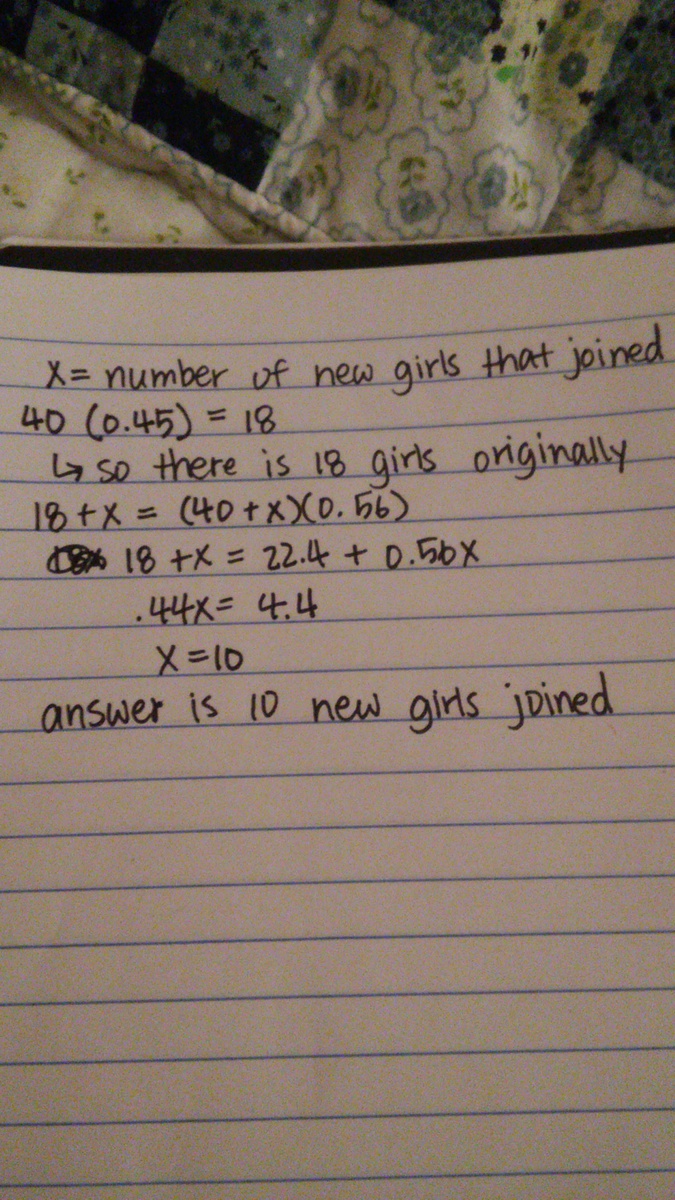 x = number of new girls that joined
40 (0.45) = 18
↳ so there is 18 girls originally
18 + x = (40 + x)(0.56)
18 + x = 22.4 + 0.56x
.44x = 4.4
x = 10
answer is 10 new girls joined